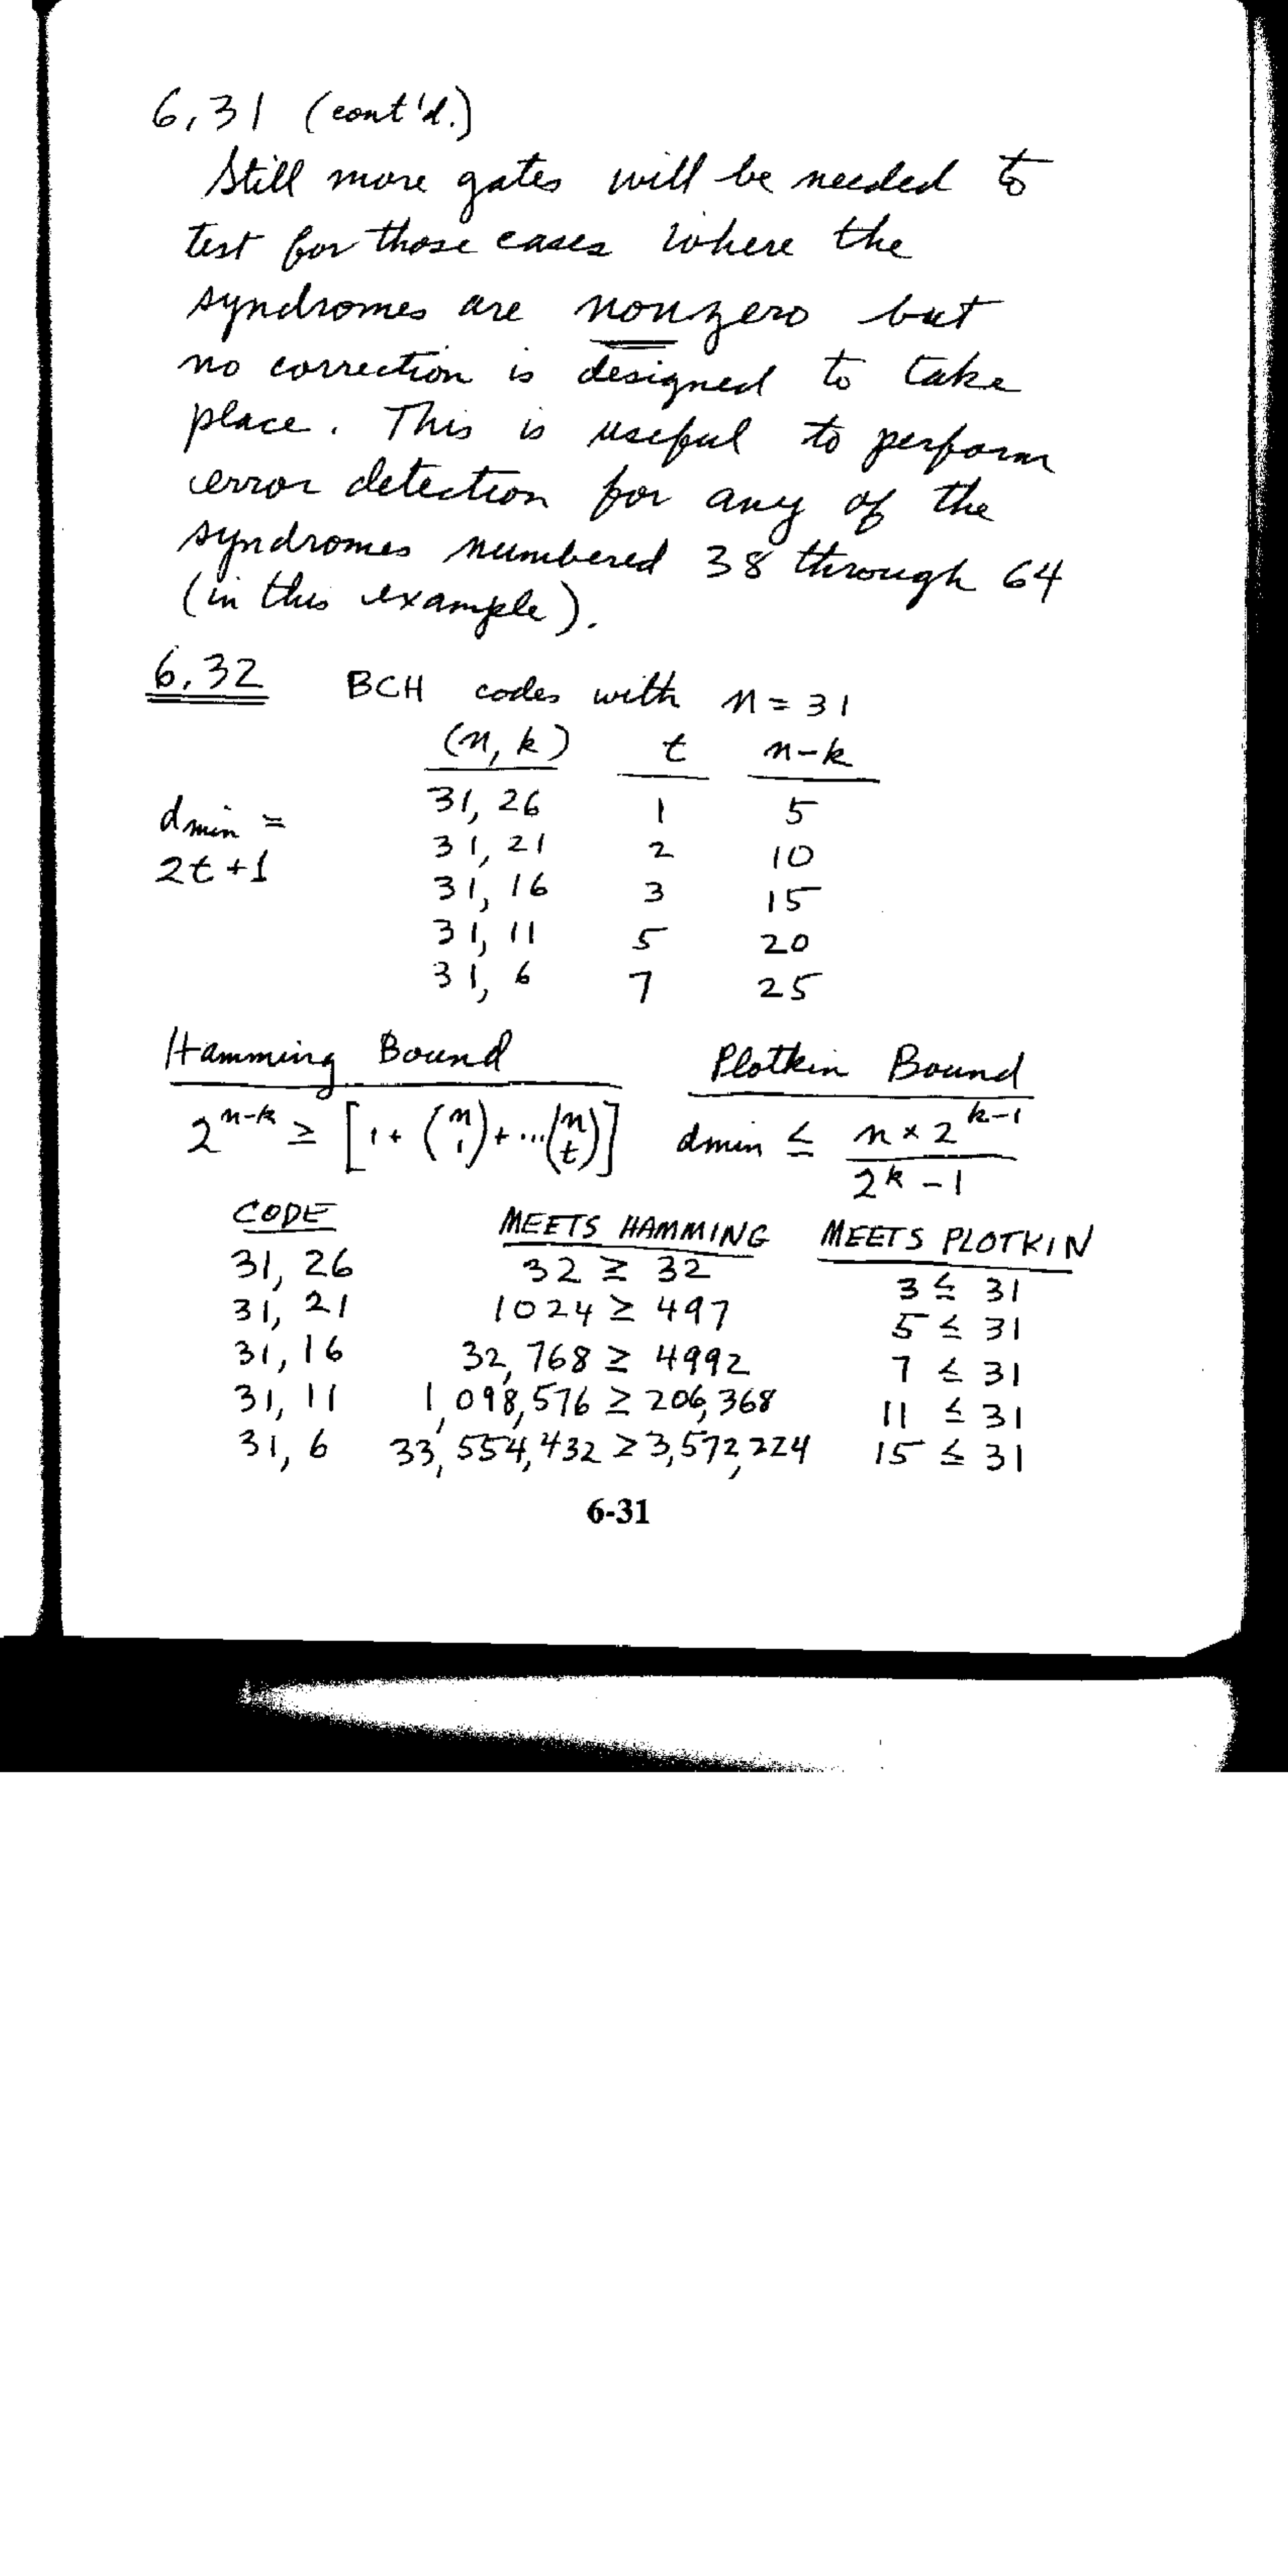 6.31 (cont'd.)
Still more gates will be needed to
test for those cases where the
syndromes are nonzero but
no correction is designed to take
place. This is useful to perform
error detection for any of the
syndromes numbered 38 through 64
(in this example).
6.32 BCH codes with n = 31
(n, k) t n-k
dmin = 2t+1
31, 26 1 5
31, 21 2 10
31, 16 3 15
31, 11 5 20
31, 6 7 25
Hamming Bound Plotkin Bound
2^n-k ≥ [1 + (n 1) + ... (n t)] dmin ≤ n × 2^k-1 / 2^k - 1
CODE MEETS HAMMING MEETS PLOTKIN
31, 26 32 ≥ 32 3 ≤ 31
31, 21 1024 ≥ 497 5 ≤ 31
31, 16 32,768 ≥ 4992 7 ≤ 31
31, 11 1,098,576 ≥ 206,368 11 ≤ 31
31, 6 33,554,432 ≥ 3,572,224 15 ≤ 31
6-31